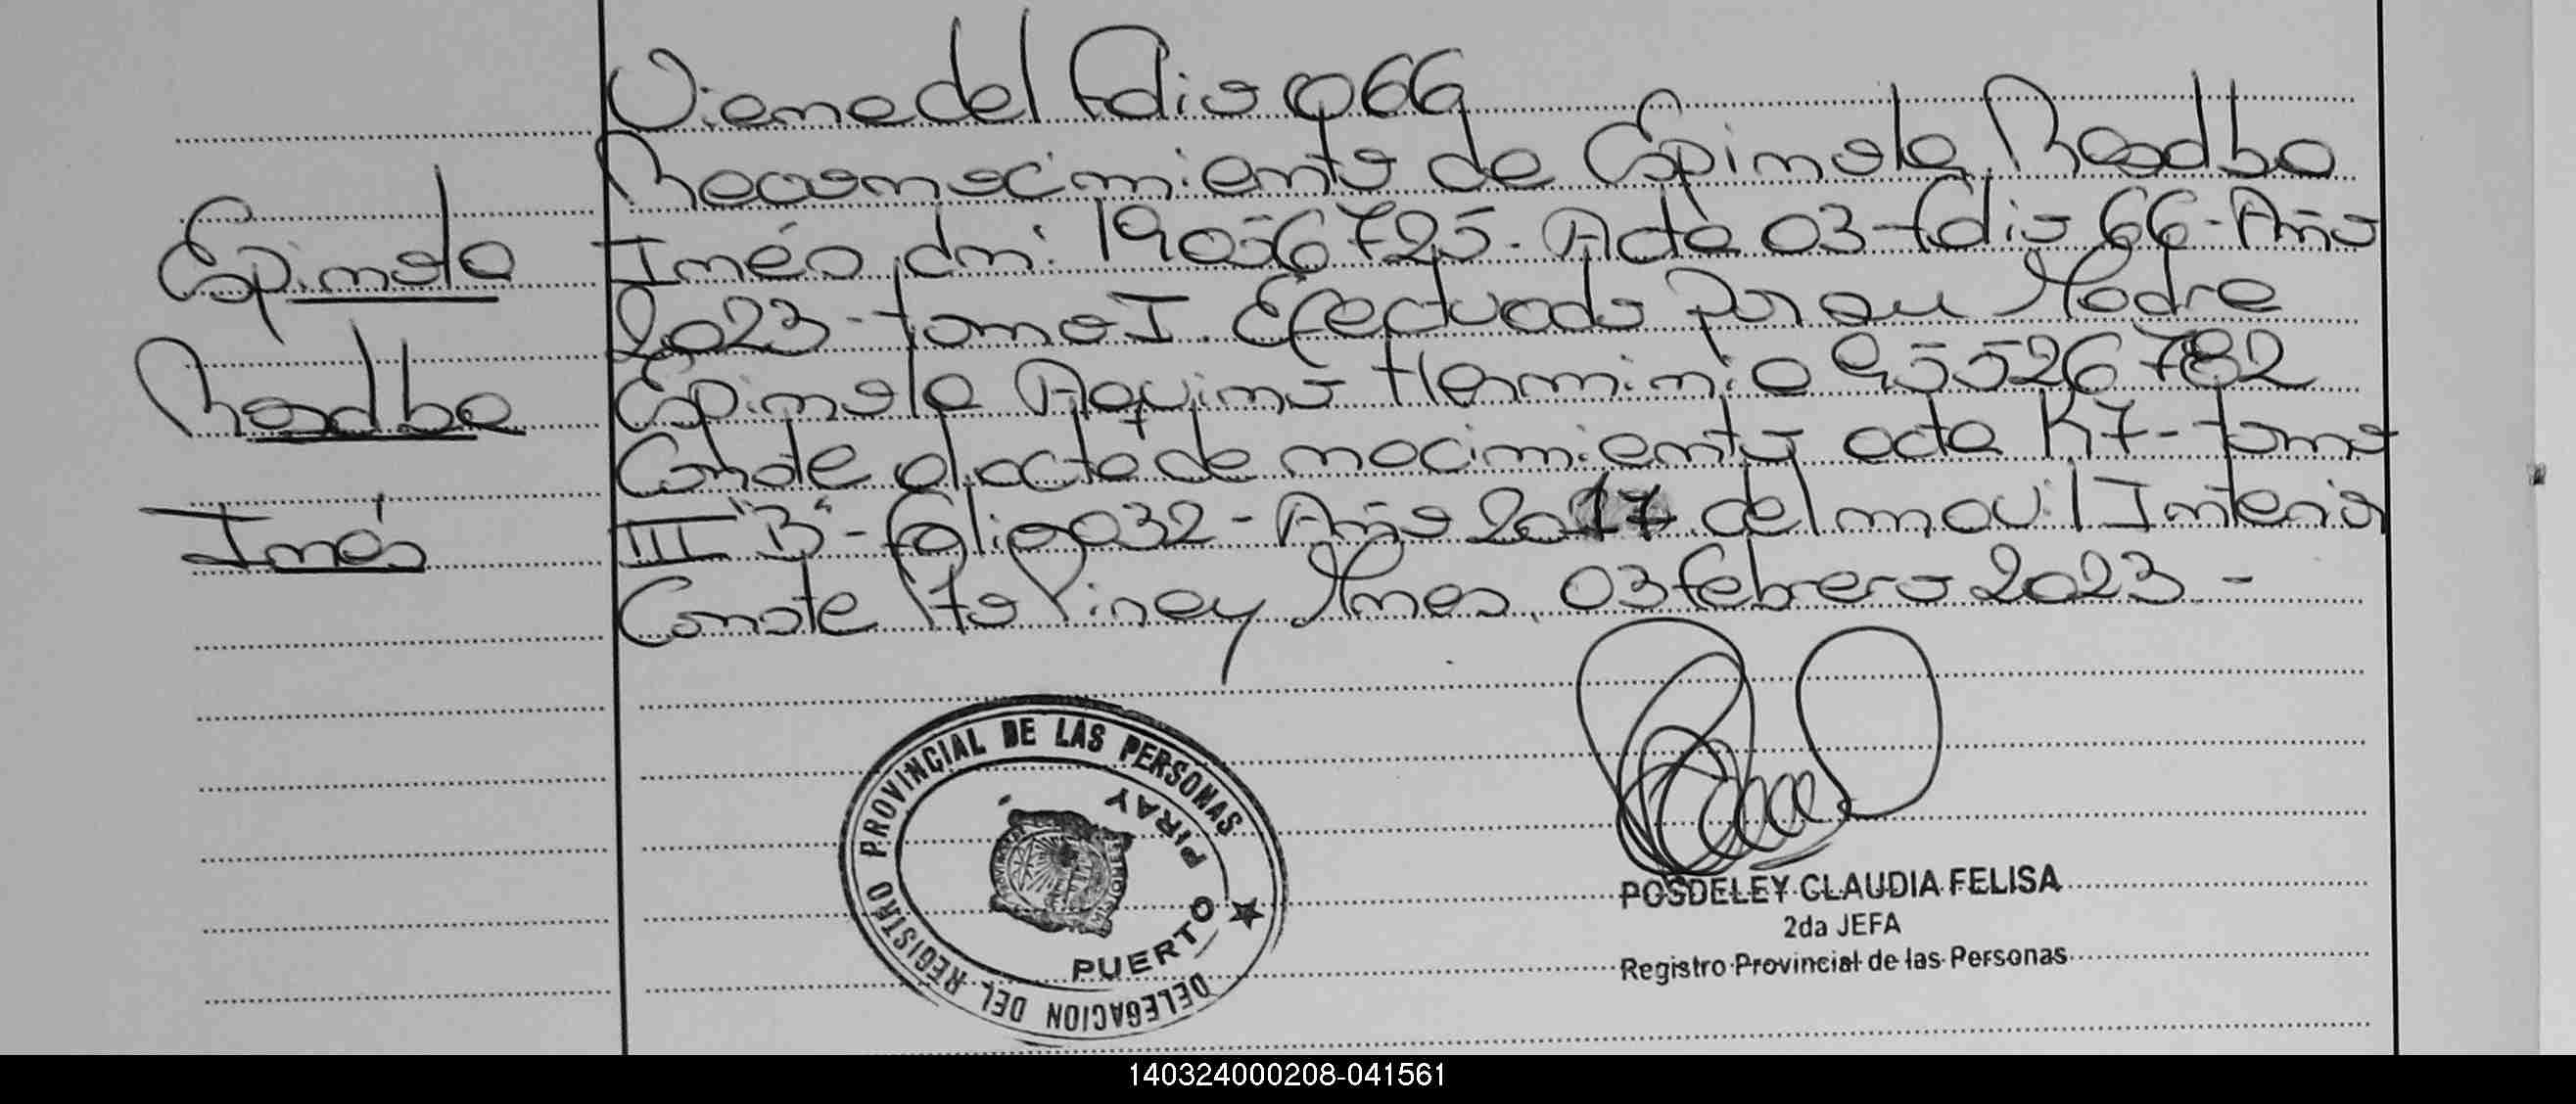 Viene del folio 066
Reconocimiento de Espinola Rosalba
Inés dni: 19056725. Acta 03-folio 66-Año
2023-tomo I. Efectuado por su Madre
Espinola Aquino Herminia 95526782
Conste el acta de nacimiento acta 147-tomo
III "B"-folio 032-Año 2017 del movil Interior
Conste Pto Piray Mnes, 03 febrero 2023.-
Espinola
Rosalba
Inés
DELEGACION DEL REGISTRO PROVINCIAL DE LAS PERSONAS
PUERTO PIRAY
POSDELEY CLAUDIA FELISA
2da JEFA
Registro Provincial de las Personas
140324000208-041561